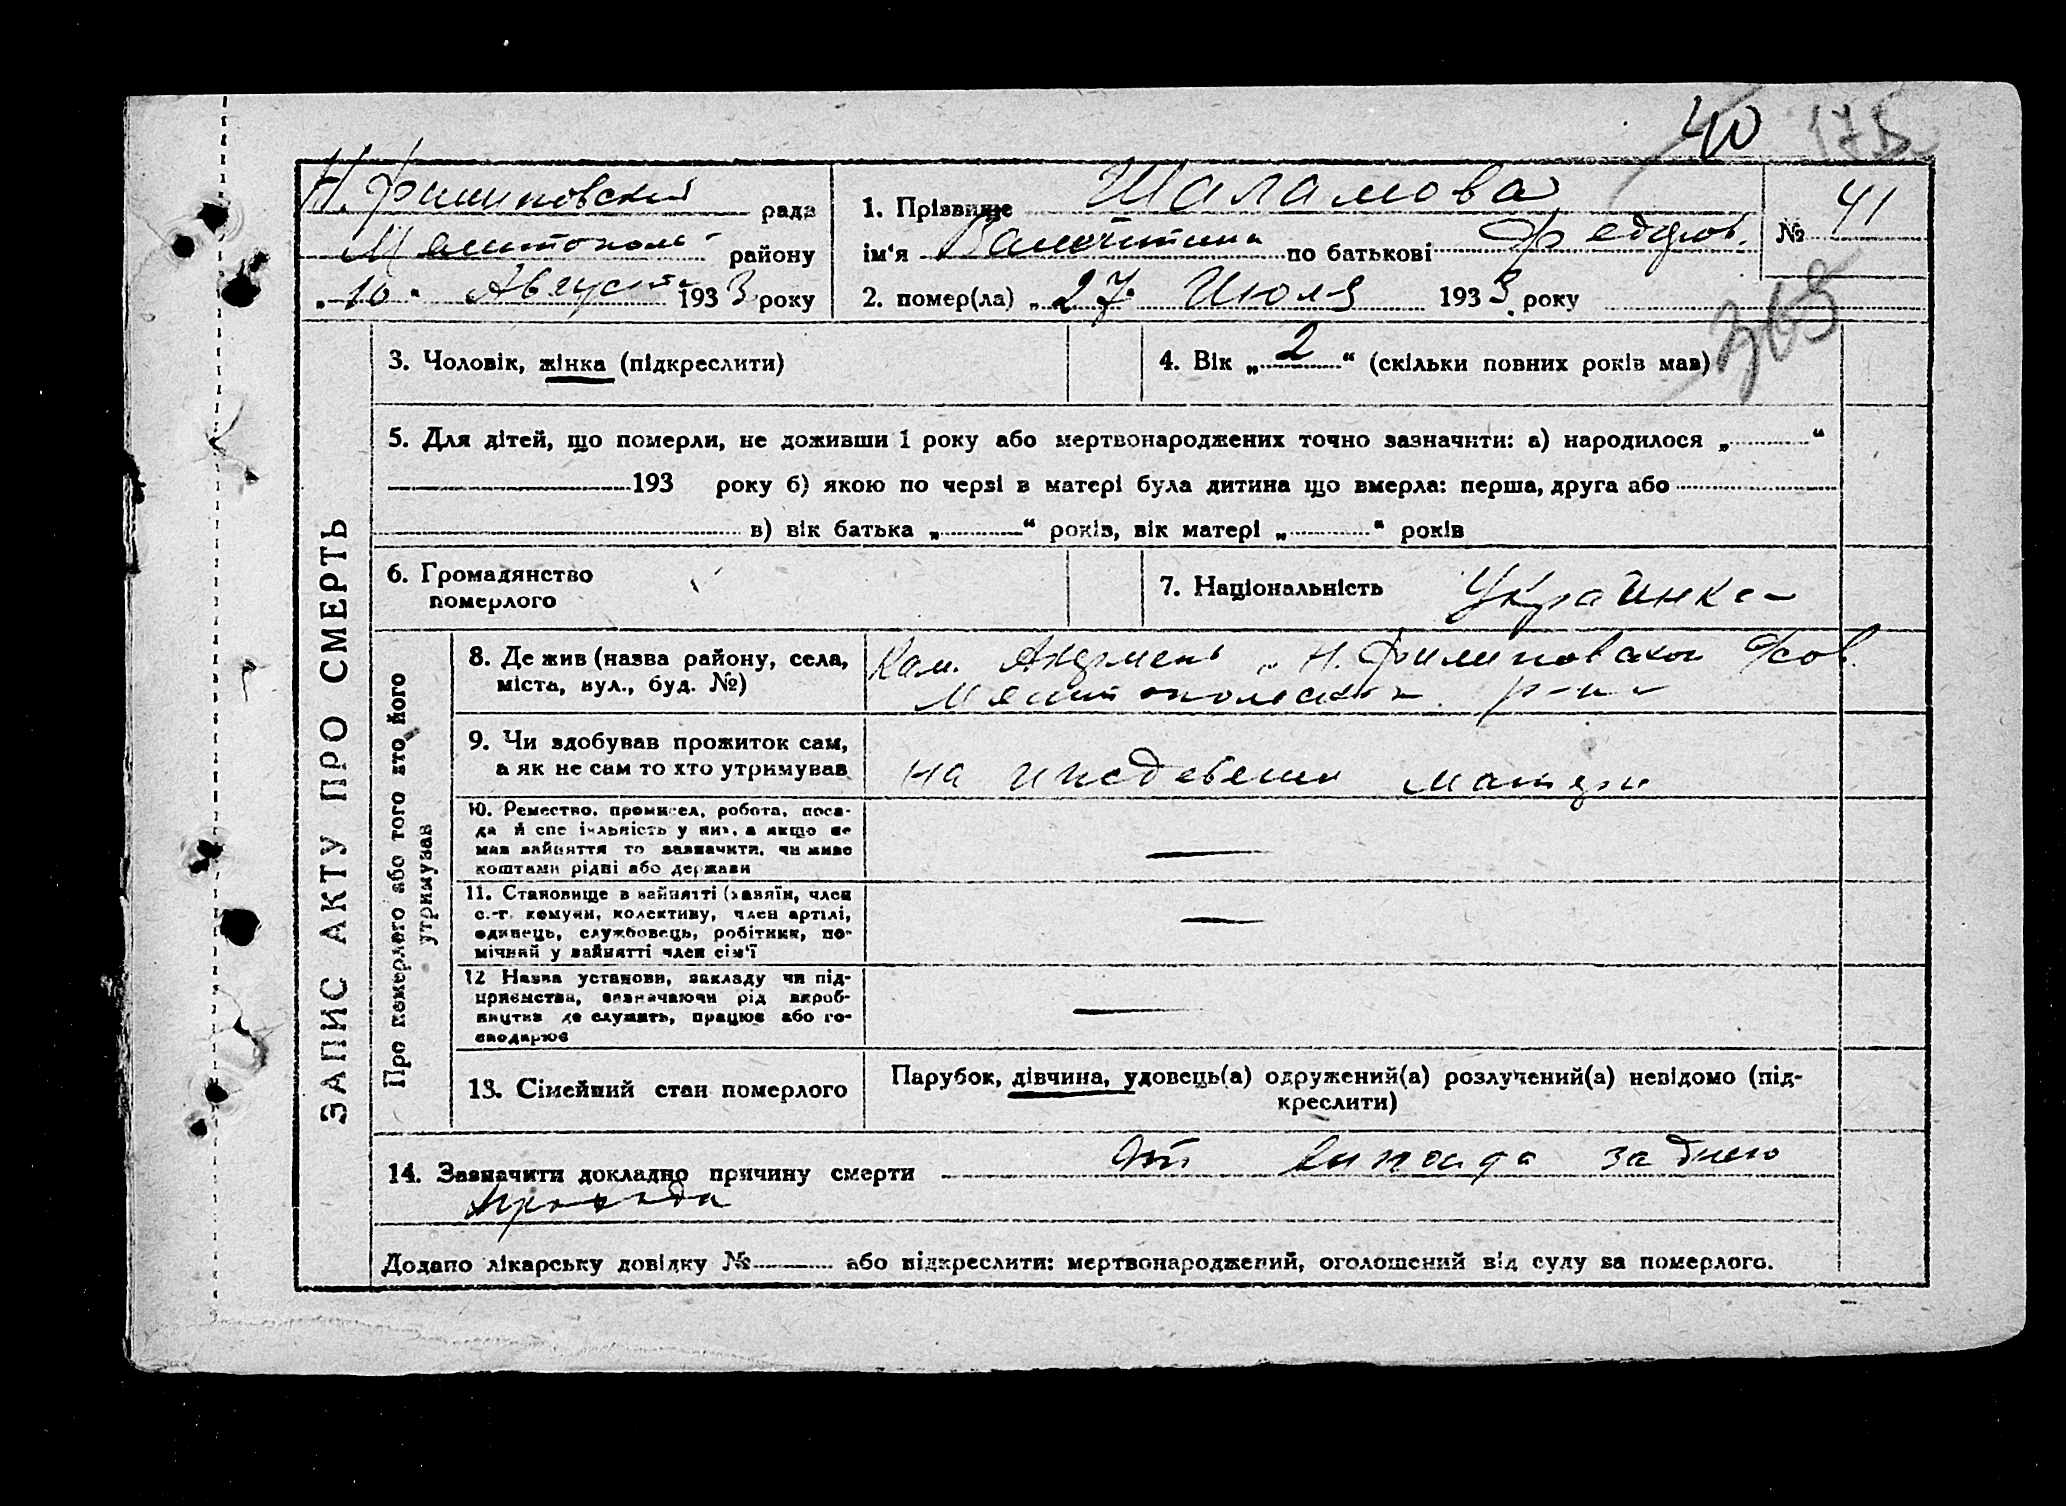 40 175
Н. Филиповский рада
Мелитополь району
„10“ Августа 1933 року
1. Прізвище Шаламова
ім'я Валентина по батькові Федоров.
2. помер(ла) „27“ Июля 1933 року
№ 41
365
ЗАПИС АКТУ ПРО СМЕРТЬ
3. Чоловік, жінка (підкреслити)
4. Вік „2“ (скільки повних років мав)
5. Для дітей, що померли, не доживши 1 року або мертвонароджених точно зазначити: а) народилося „ “
193 року б) якою по черзі в матері була дитина що вмерла: перша, друга або
в) вік батька „ “ років, вік матері „ “ років
6. Громадянство
померлого
7. Національність Украинка
Про померлого або того хто його
утримував
8. Де жив (назва району, села,
міста, вул., буд. №)
Н. Филиповской с/сов.
Мелитопольского р-на
9. Чи здобував прожиток сам,
а як не сам то хто утримував
на иждевении матери
10. Ремество, промисел, робота, поса-
да й спеціяльність у них, а якщо не
мав зайняття то зазначити, чи живе
коштами рідні або держави
—
11. Становище в зайнятті (хазяїн, член
с.-г. комуни, колективу, член артілі,
одинець, службовець, робітник, по-
мічний у зайнятті член сім'ї
—
12 Назва установи, закладу чи під-
приємства, зазначаючи рід вироб-
ництва де служить, працює або го-
сподарює
—
13. Сімейний стан померлого
Парубок, дівчина, удовець(а) одружений(а) розлучений(а) невідомо (під-
креслити)
14. Зазначити докладно причину смерти От заднего
прохода
Додано лікарську довідку № або підкреслити: мертвонароджений, оголошений від суду за померлого.